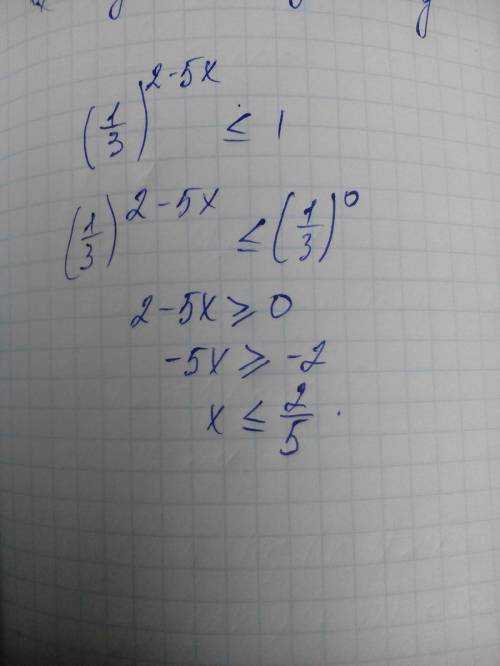 (1/3)^(2-5x) ≤ 1
(1/3)^(2-5x) ≤ (1/3)^0
2-5x ≥ 0
-5x ≥ -2
x ≤ 2/5.